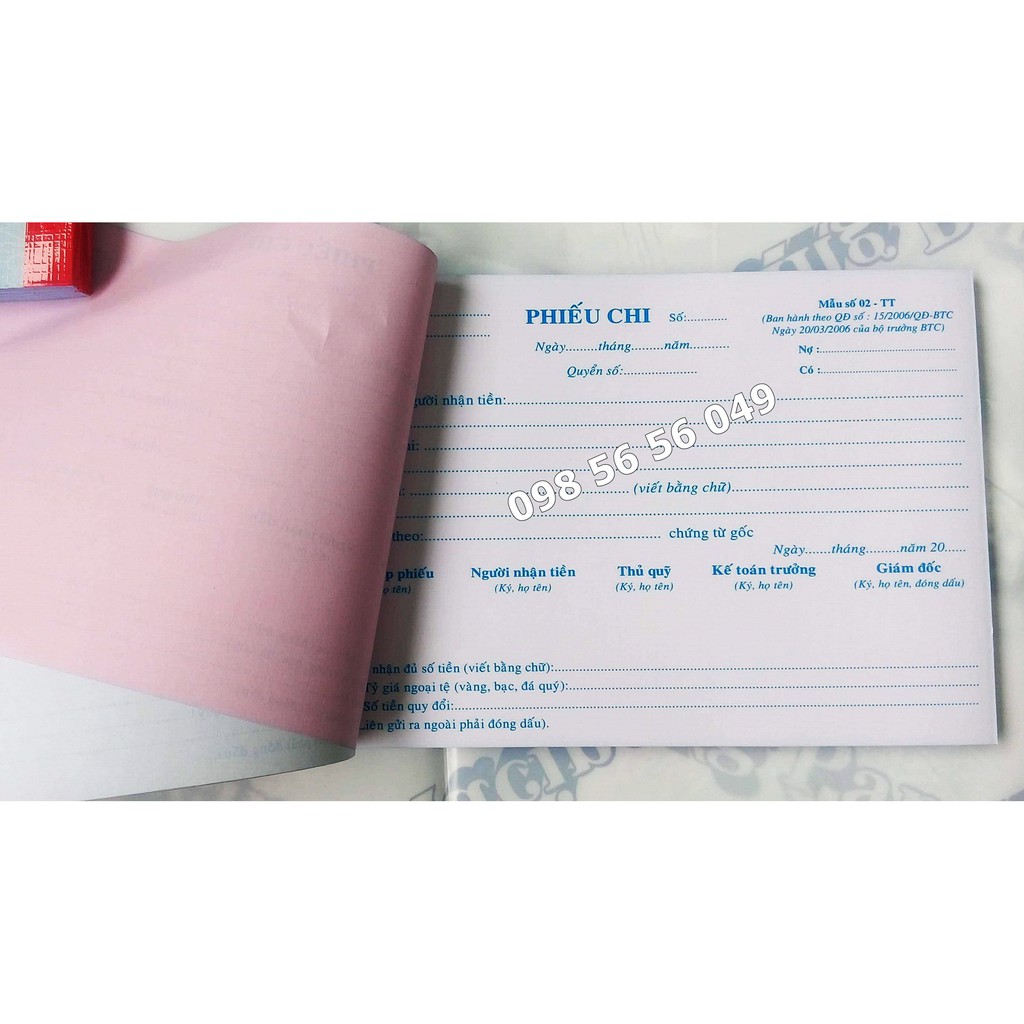 PHIẾU CHI Số:...........
Mẫu số 02 - TT
(Ban hành theo QĐ số : 15/2006/QĐ-BTC
Ngày 20/03/2006 của bộ trưởng BTC)
Ngày.........tháng.........năm............
Nợ :..............................................
Quyển số:......................
Có :..............................................
nhận tiền:..............................
098 56 56 049
(viết bằng chữ)..............................
theo:.............................. chứng từ gốc
Ngày.......tháng.........năm 20......
phiếu Người nhận tiền Thủ quỹ Kế toán trưởng Giám đốc
tên) (Ký, họ tên) (Ký, họ tên) (Ký, họ tên) (Ký, họ tên, đóng dấu)
nhận đủ số tiền (viết bằng chữ):..............................
Tỷ giá ngoại tệ (vàng, bạc, đá quý):..............................
Số tiền quy đổi:..............................
gửi ra ngoài phải đóng dấu).